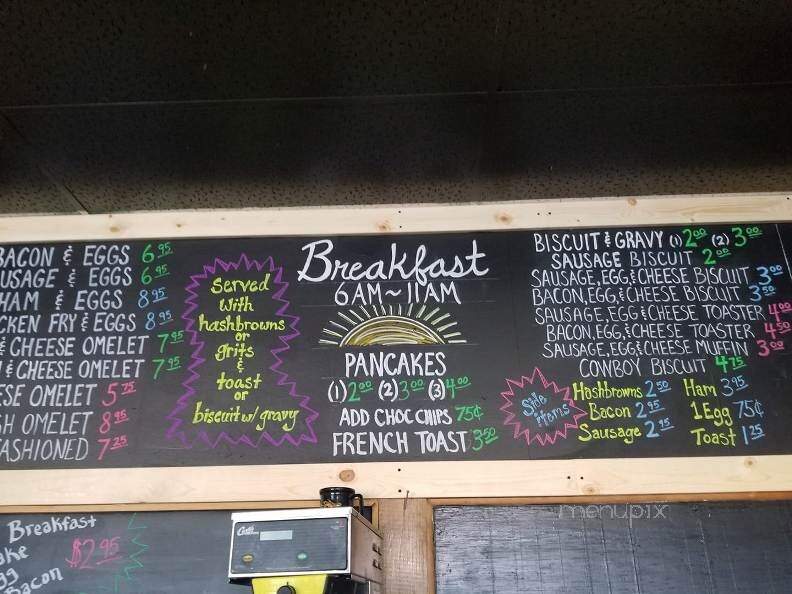 BACON & EGGS 6.95
USAGE & EGGS 6.95
HAM & EGGS 8.95
CKEN FRY & EGGS 8.95
& CHEESE OMELET 7.95
& CHEESE OMELET 7.95
ESE OMELET 5.75
SH OMELET 8.95
FASHIONED 7.25
Served
with
hashbrowns
or
grits
&
toast
or
biscuit w/ gravy
Breakfast
6AM~11AM
PANCAKES
(1) 2.00 (2) 3.00 (3) 4.00
ADD CHOC CHIPS 75¢
FRENCH TOAST 3.50
BISCUIT & GRAVY (1) 2.00 (2) 3.00
SAUSAGE BISCUIT 2.00
SAUSAGE, EGG, & CHEESE BISCUIT 3.00
BACON, EGG, & CHEESE BISCUIT 3.50
SAUSAGE, EGG & CHEESE TOASTER 4.00
BACON, EGG, & CHEESE TOASTER 4.50
SAUSAGE, EGG & CHEESE MUFFIN 3.00
COWBOY BISCUIT 4.75
Side
items
Hashbrowns 2.50 Ham 3.95
Bacon 2.95 1 Egg 75¢
Sausage 2.95 Toast 1.25
Breakfast
ake $2.95
gg
Bacon
menupix